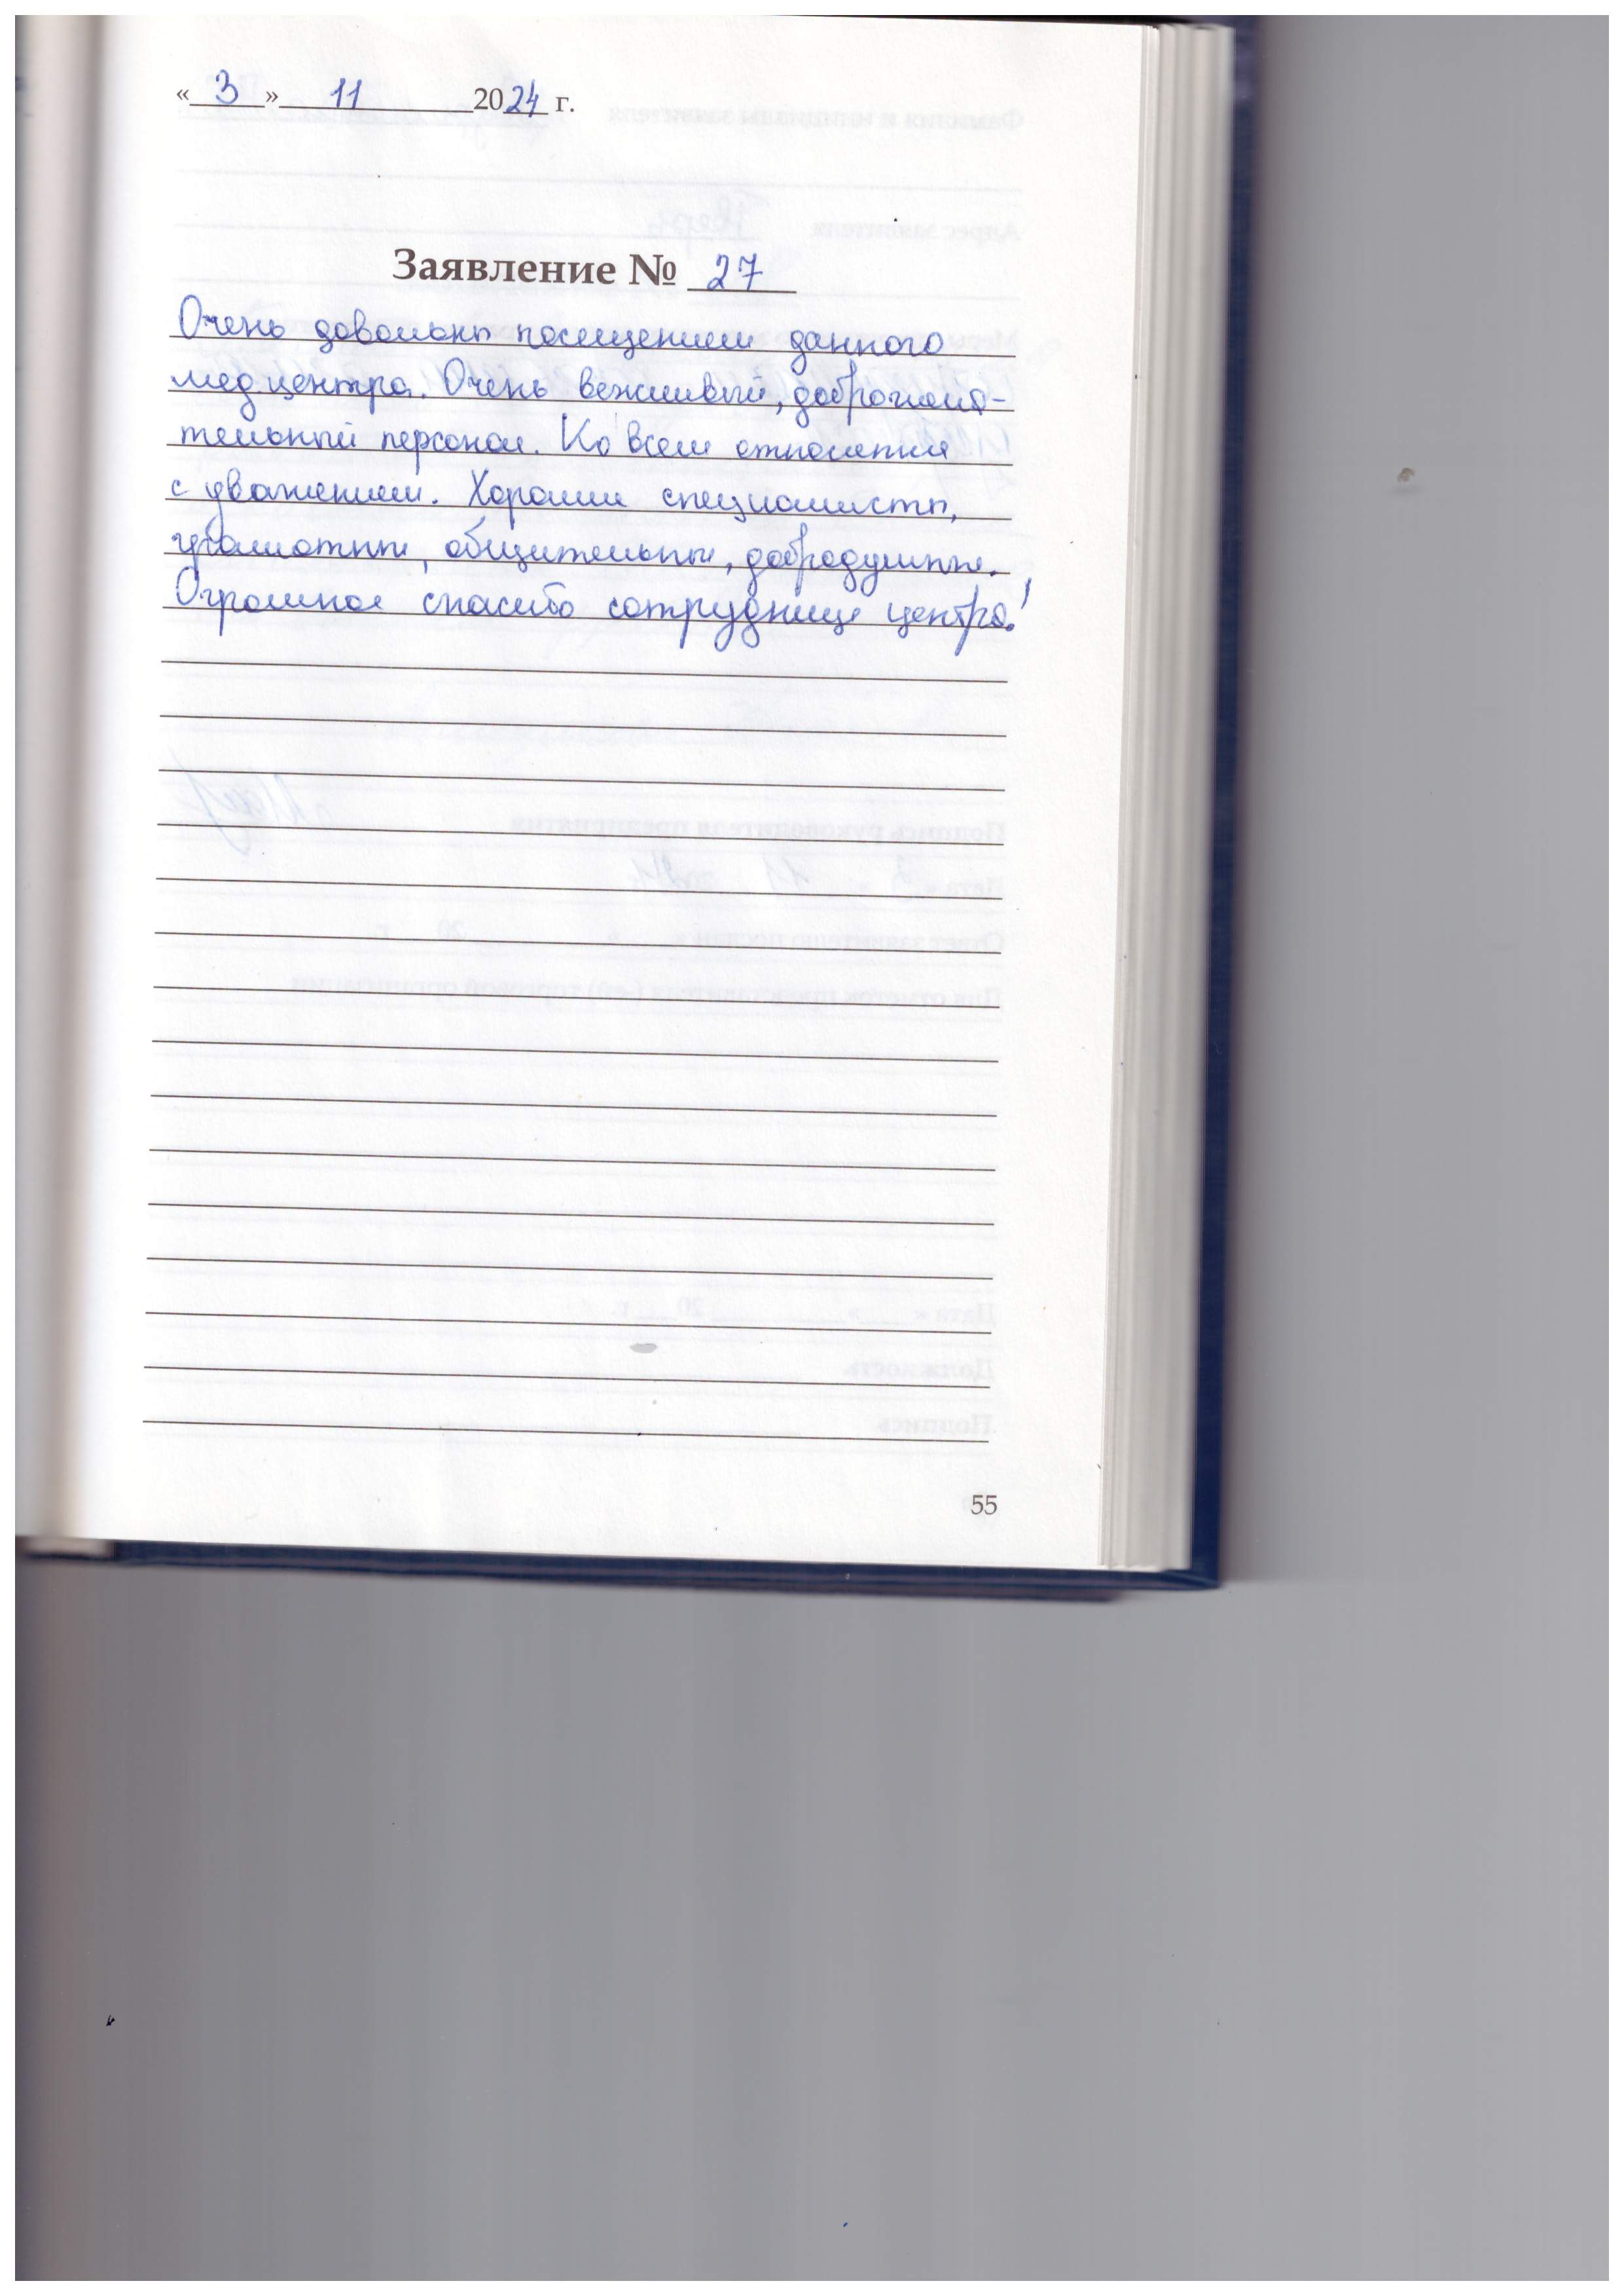 «3» 11 2024 г.
Заявление № 27
Очень довольны посещением данного
медцентра. Очень вежливый, доброжела-
тельный персонал. Ко всем отношения
с уважением. Хорошие специалисты,
грамотные, общительные, добродушные.
Огромное спасибо сотруднице центра!
55